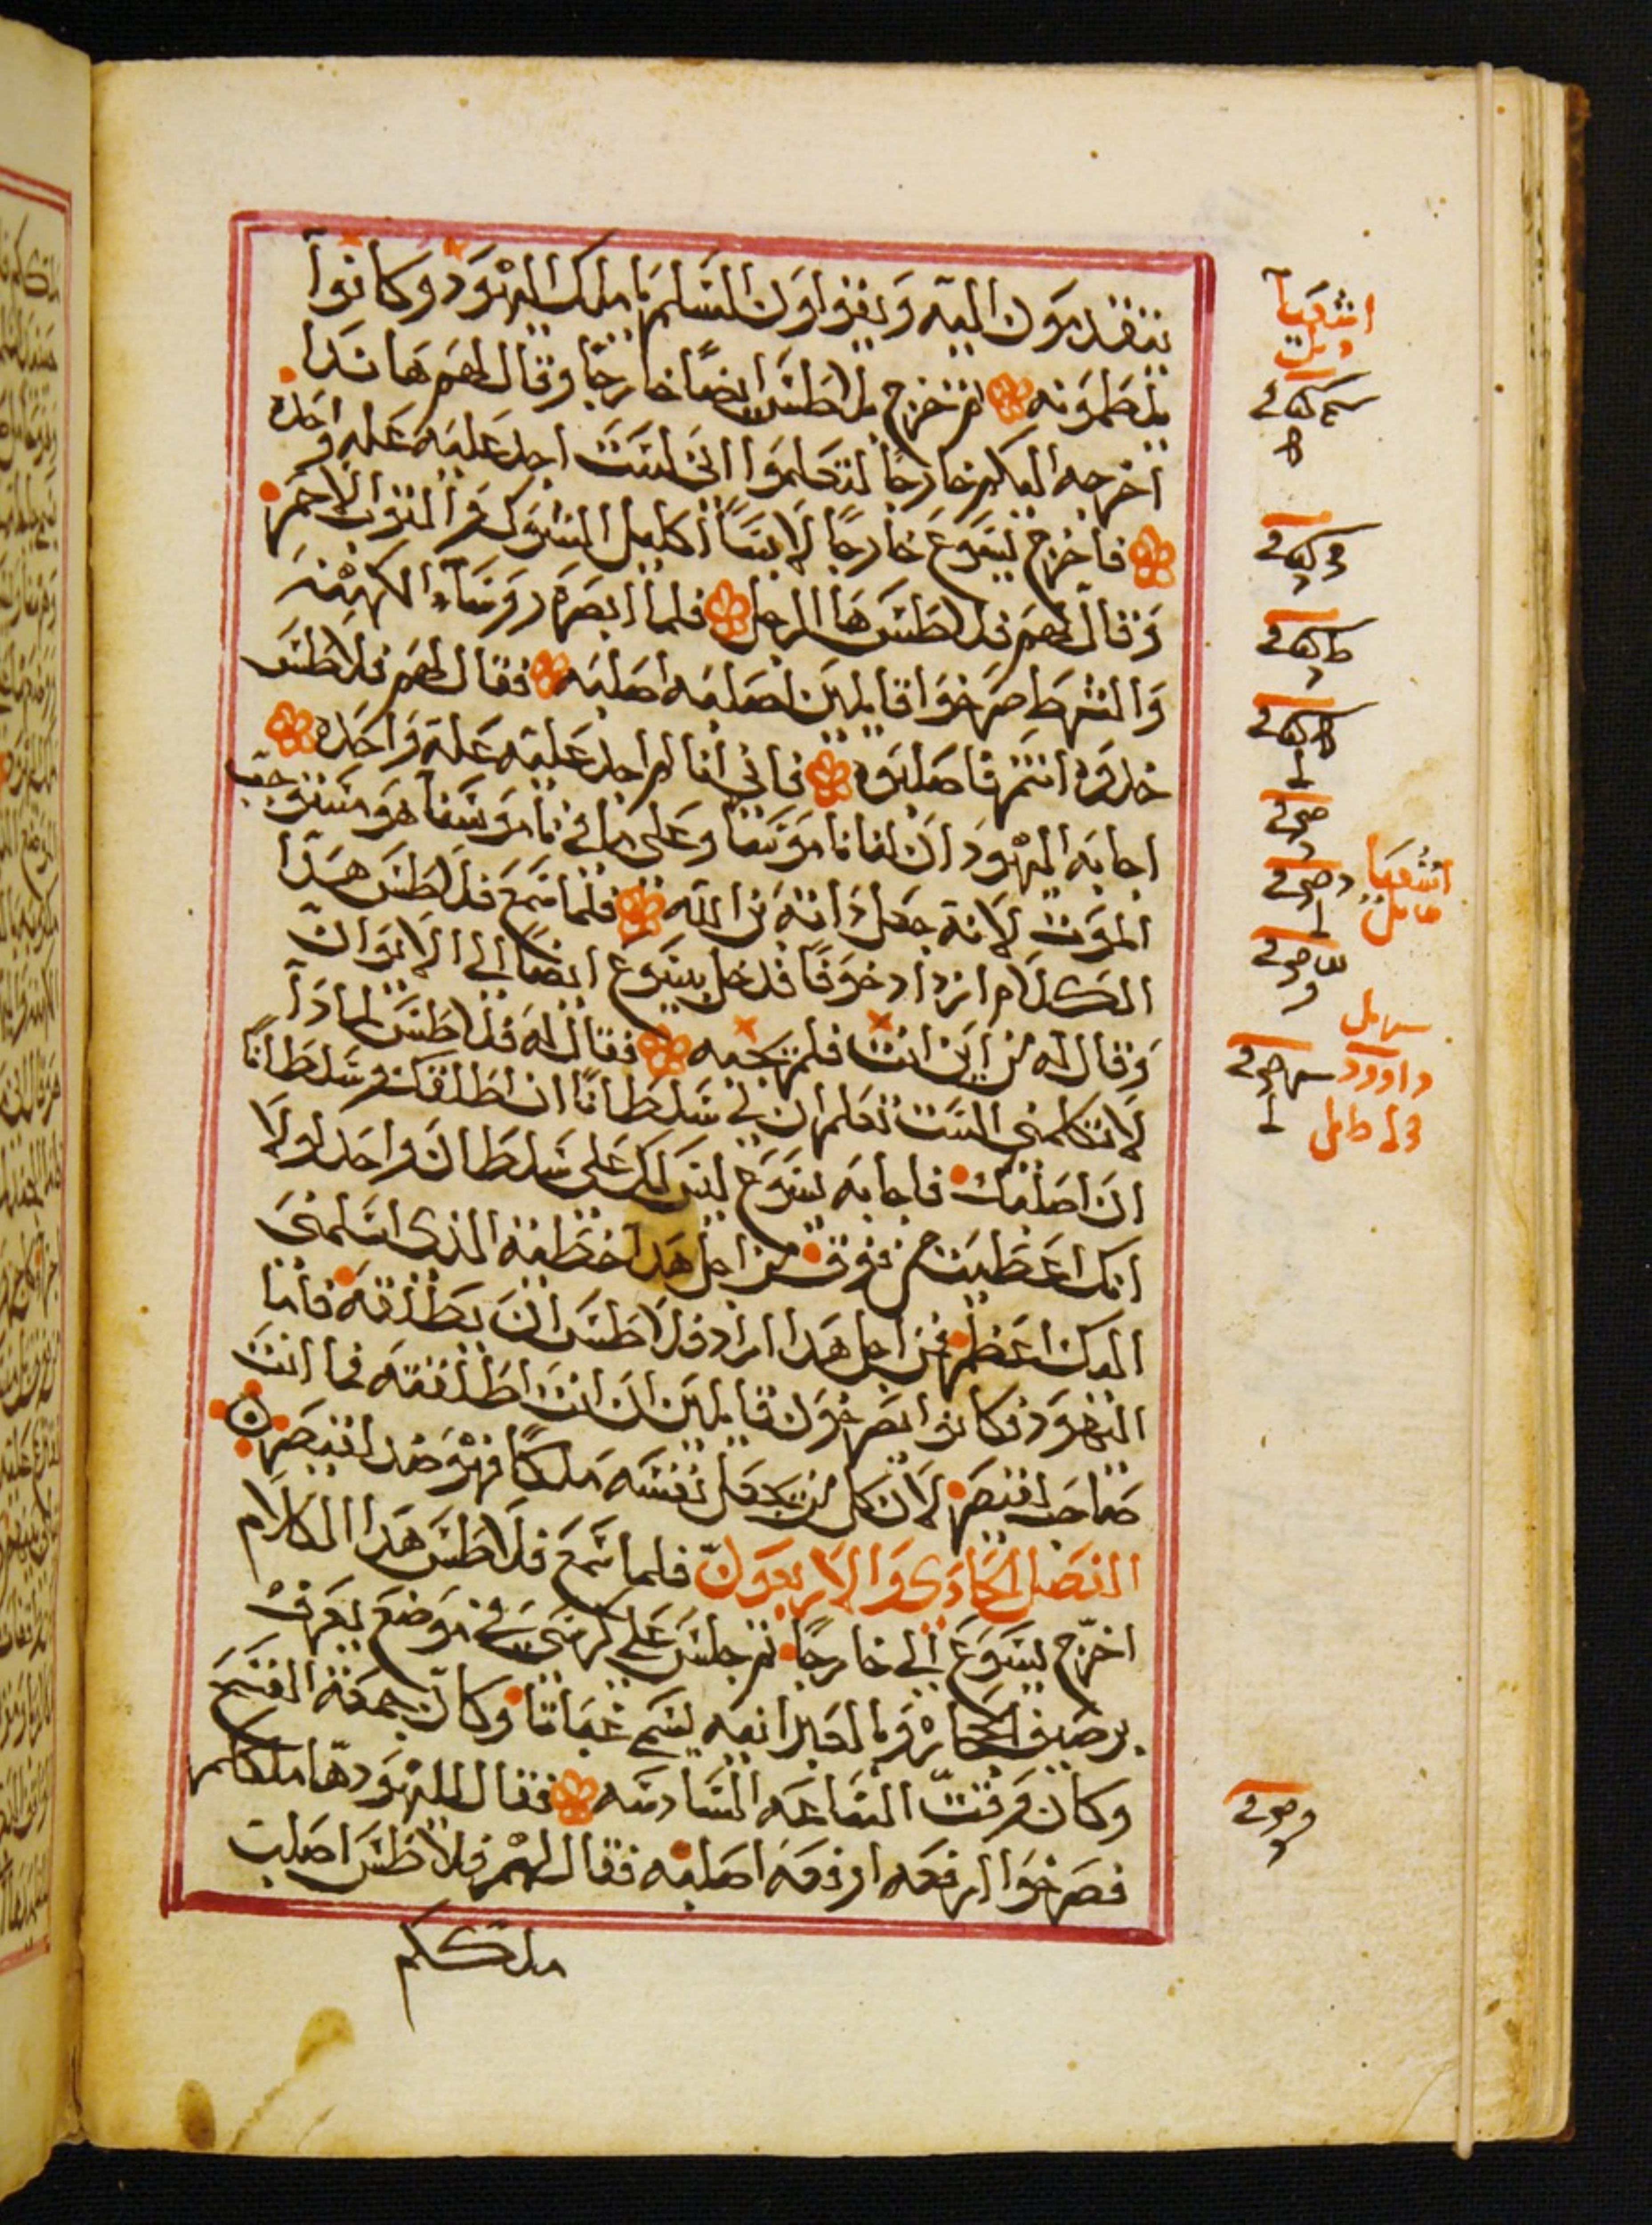 يتقدمون اليه ويقولون السلم يا ملك اليهود وكانوا
يلطمونه ثم خرج بلاطس ايضًا خارجًا وقال لهم ها ندا
اخرجه اليكم خارجًا لتعلموا اني لست اجد عليه عله واحده
فاخرج يسوع خارجًا لابسًا اكليل الشوك والثوب الاحمر
وقال لهم فلاطس ها الرجل فلما ابصره روسآء الكهنه
والشرط صرخوا قايلين اصلبه اصلبه فقال لهم فلاطس
خدوه انتم فاصلبوه فاني انا لم اجد عليه علة واحده
اجابه اليهود ان لنا ناموسًا وعلى ما في ناموسنا هو مستوجب
الموت لانه جعل ذاته بن الله فلما سمع فلاطس هدا
الكلام ازداد خوفًا فدخل يسوع ايضًا الي الايوان
وقال له من اين انت فلم يجبه فقال له فلاطس لمادا
لا تكلمني الست تعلم ان لي سلطانًا ان اطلقك وسلطانًا
ان اصلبك فاجابه يسوع ليس لك علي سلطان واحد لولا
انك اعطيت من فوق من اجل هدا خطية الدي اسلمني
اليك اعظم فمن اجل هدا اراد فلاطس ان يطلقه فاما
اليهود فكانوا يصرخون قايلين ان انت اطلقته فما انت
صاحب لقيصر لان كل من يجعل نفسه ملكًا فهو ضد لقيصر
الفصل الحادي والاربعون فلما سمع فلاطس هدا الكلام
اخرج يسوع الي خارجًا ثم جلس علي كرسي في موضع يعرف
برصيف الحجاره وبالعبرانيه يسمي غباتا وكان جمعة الفسح
وكان وقت الساعه السادسه فقال لليهود ها ملككم
فصرخوا ارفعه ارفعه اصلبه فقال لهم فلاطس اصلب
ملككم
اشعيا
اشعيا
داوود